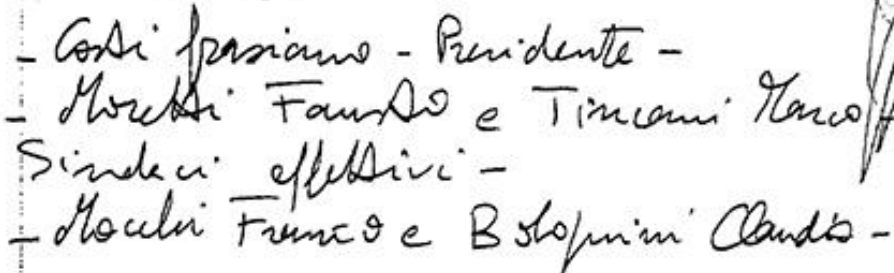 - Costi Graziano - Presidente -
- Moretti Fausto e Tincani Marco
Sindaci effettivi -
- Mochi Franco e Bolognini Claudio -